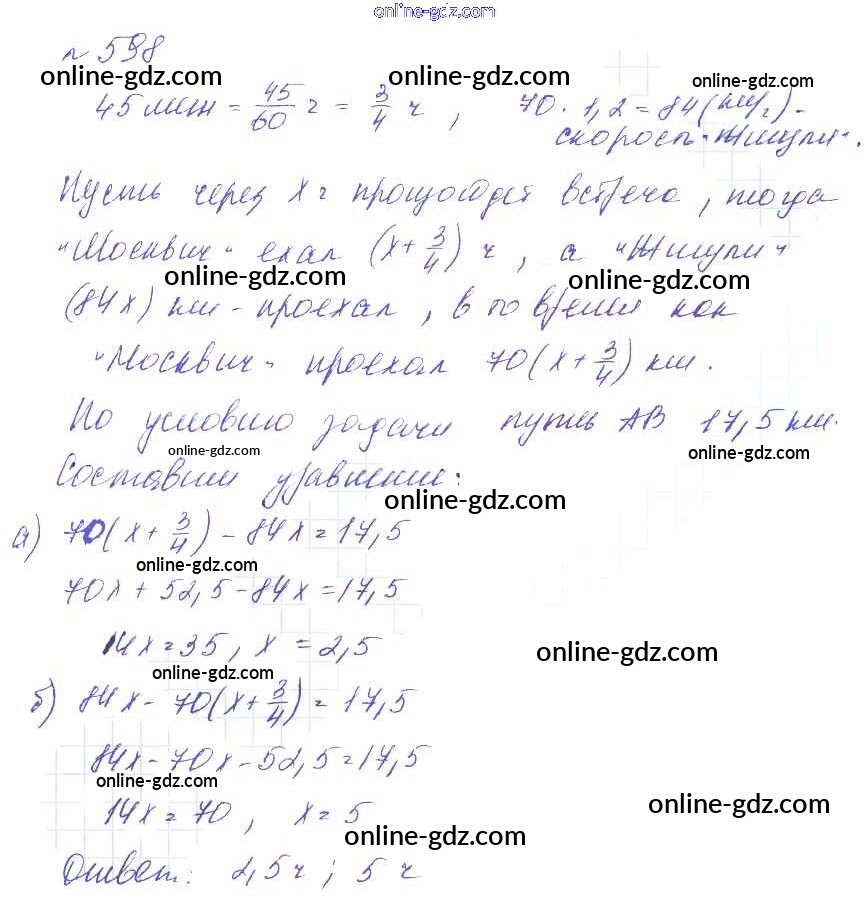 online-gdz.com
№ 598
online-gdz.com online-gdz.com online-gdz.com
45 мин = 45/60 ч = 3/4 ч , 70 · 1,2 = 84 (км/ч) -
скорость "Жигули".
Пусть через x ч произойдет встреча , тогда
"Москвич" ехал (x + 3/4) ч , а "Жигули"
online-gdz.com online-gdz.com
(84x) км - проехал , в то время как
"Москвич" проехал 70(x + 3/4) км .
По условию задачи путь AB 17,5 км.
online-gdz.com online-gdz.com
Составим уравнение:
online-gdz.com
а) 70(x + 3/4) - 84x = 17,5
online-gdz.com
70x + 52,5 - 84x = 17,5
14x = 35 , x = 2,5
online-gdz.com
online-gdz.com
б) 84x - 70(x + 3/4) = 17,5
84x - 70x - 52,5 = 17,5
online-gdz.com
14x = 70 , x = 5
online-gdz.com
online-gdz.com
Ответ: 2,5 ч ; 5 ч